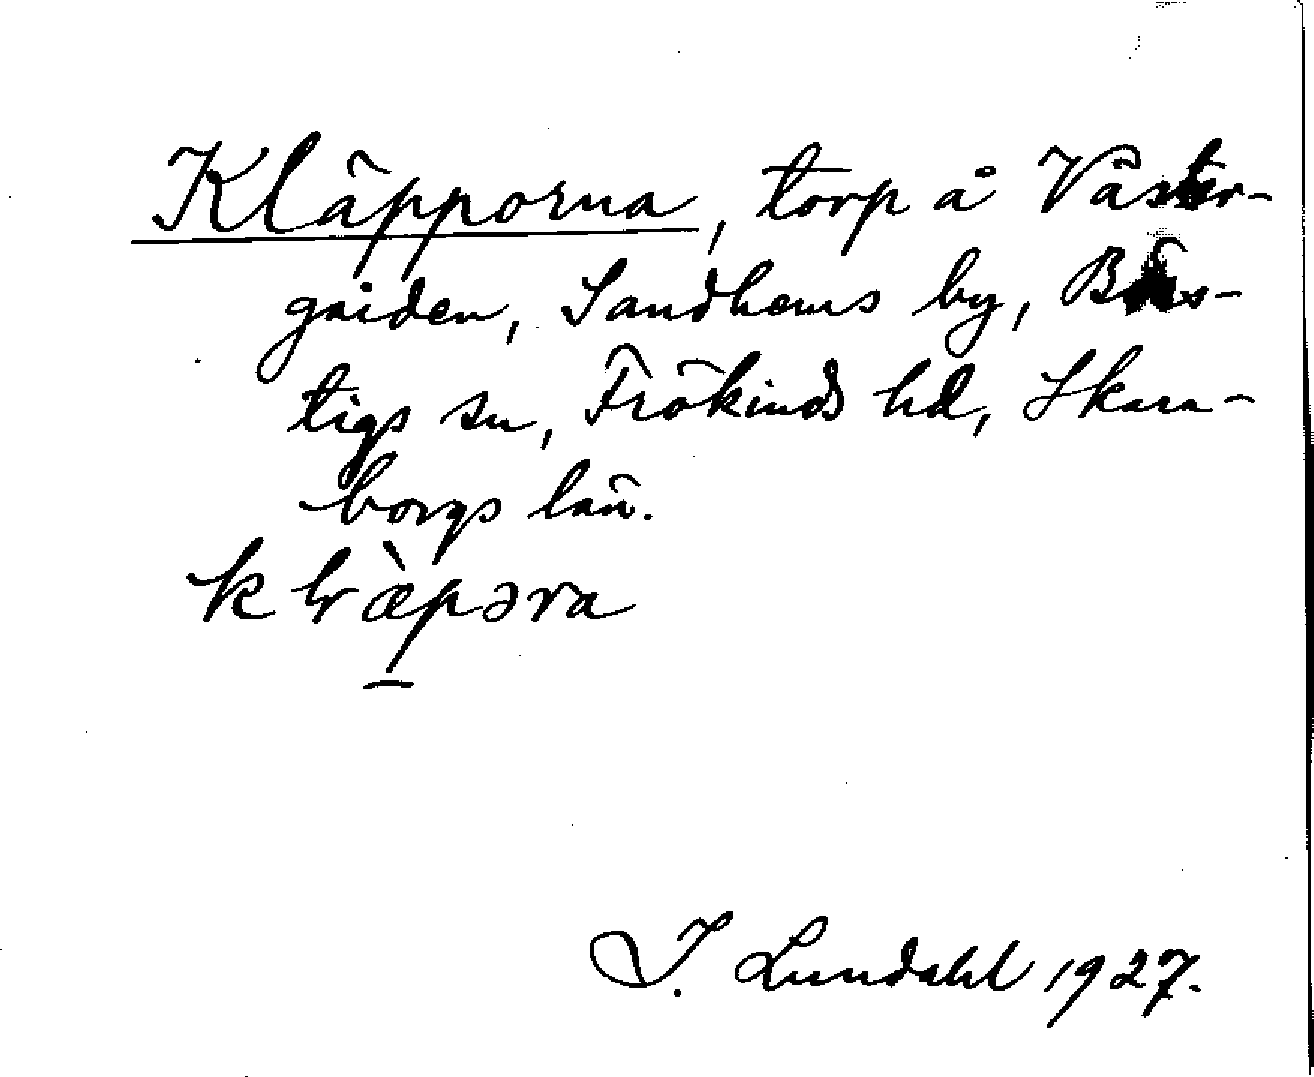 Kläpporna, torp å Väster-
gården, Sandhems by, Börs-
tigs sn, Frökinds hd, Skara-
borgs län.
klræ̀pəra
I. Lundahl 1927.